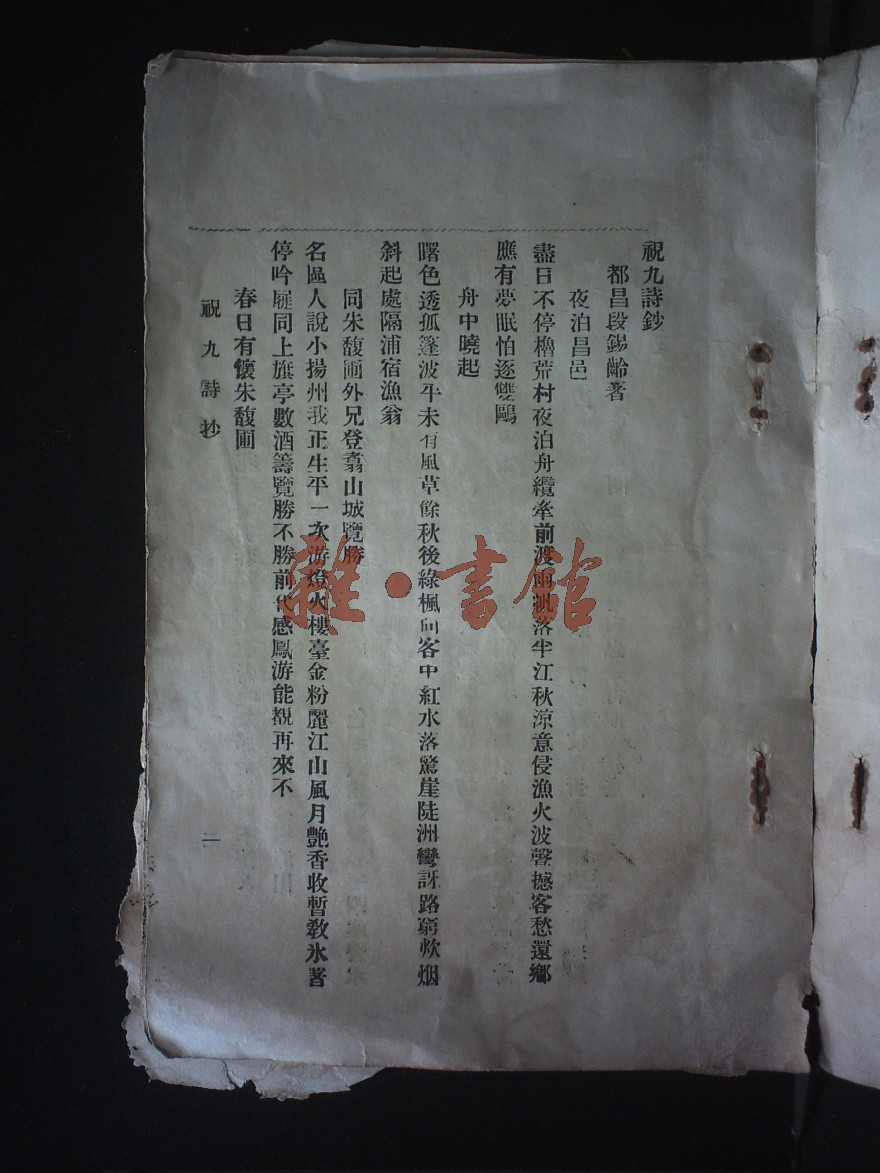 祝九詩鈔
都昌段錫齡著
夜泊昌邑
盡日不停櫓荒村夜泊舟纜牽前渡雨帆落半江秋涼意侵漁火波聲撼客愁還鄉
應有夢眠怕逐雙鷗
舟中曉起
曙色透孤篷波平未有風草餘秋後綠楓向客中紅水落驚崖陡洲彎訝路窮炊烟
斜起處隔浦宿漁翁
同朱馥圃外兄登翥山城覽勝
名區人說小揚州我正生平一次游燈火樓臺金粉麗江山風月艷香收暫教氷署
停吟屧同上旗亭數酒籌覽勝不勝前代感鳳游能覩再來不
春日有懷朱馥圃
祝九詩抄
一
雜·書館